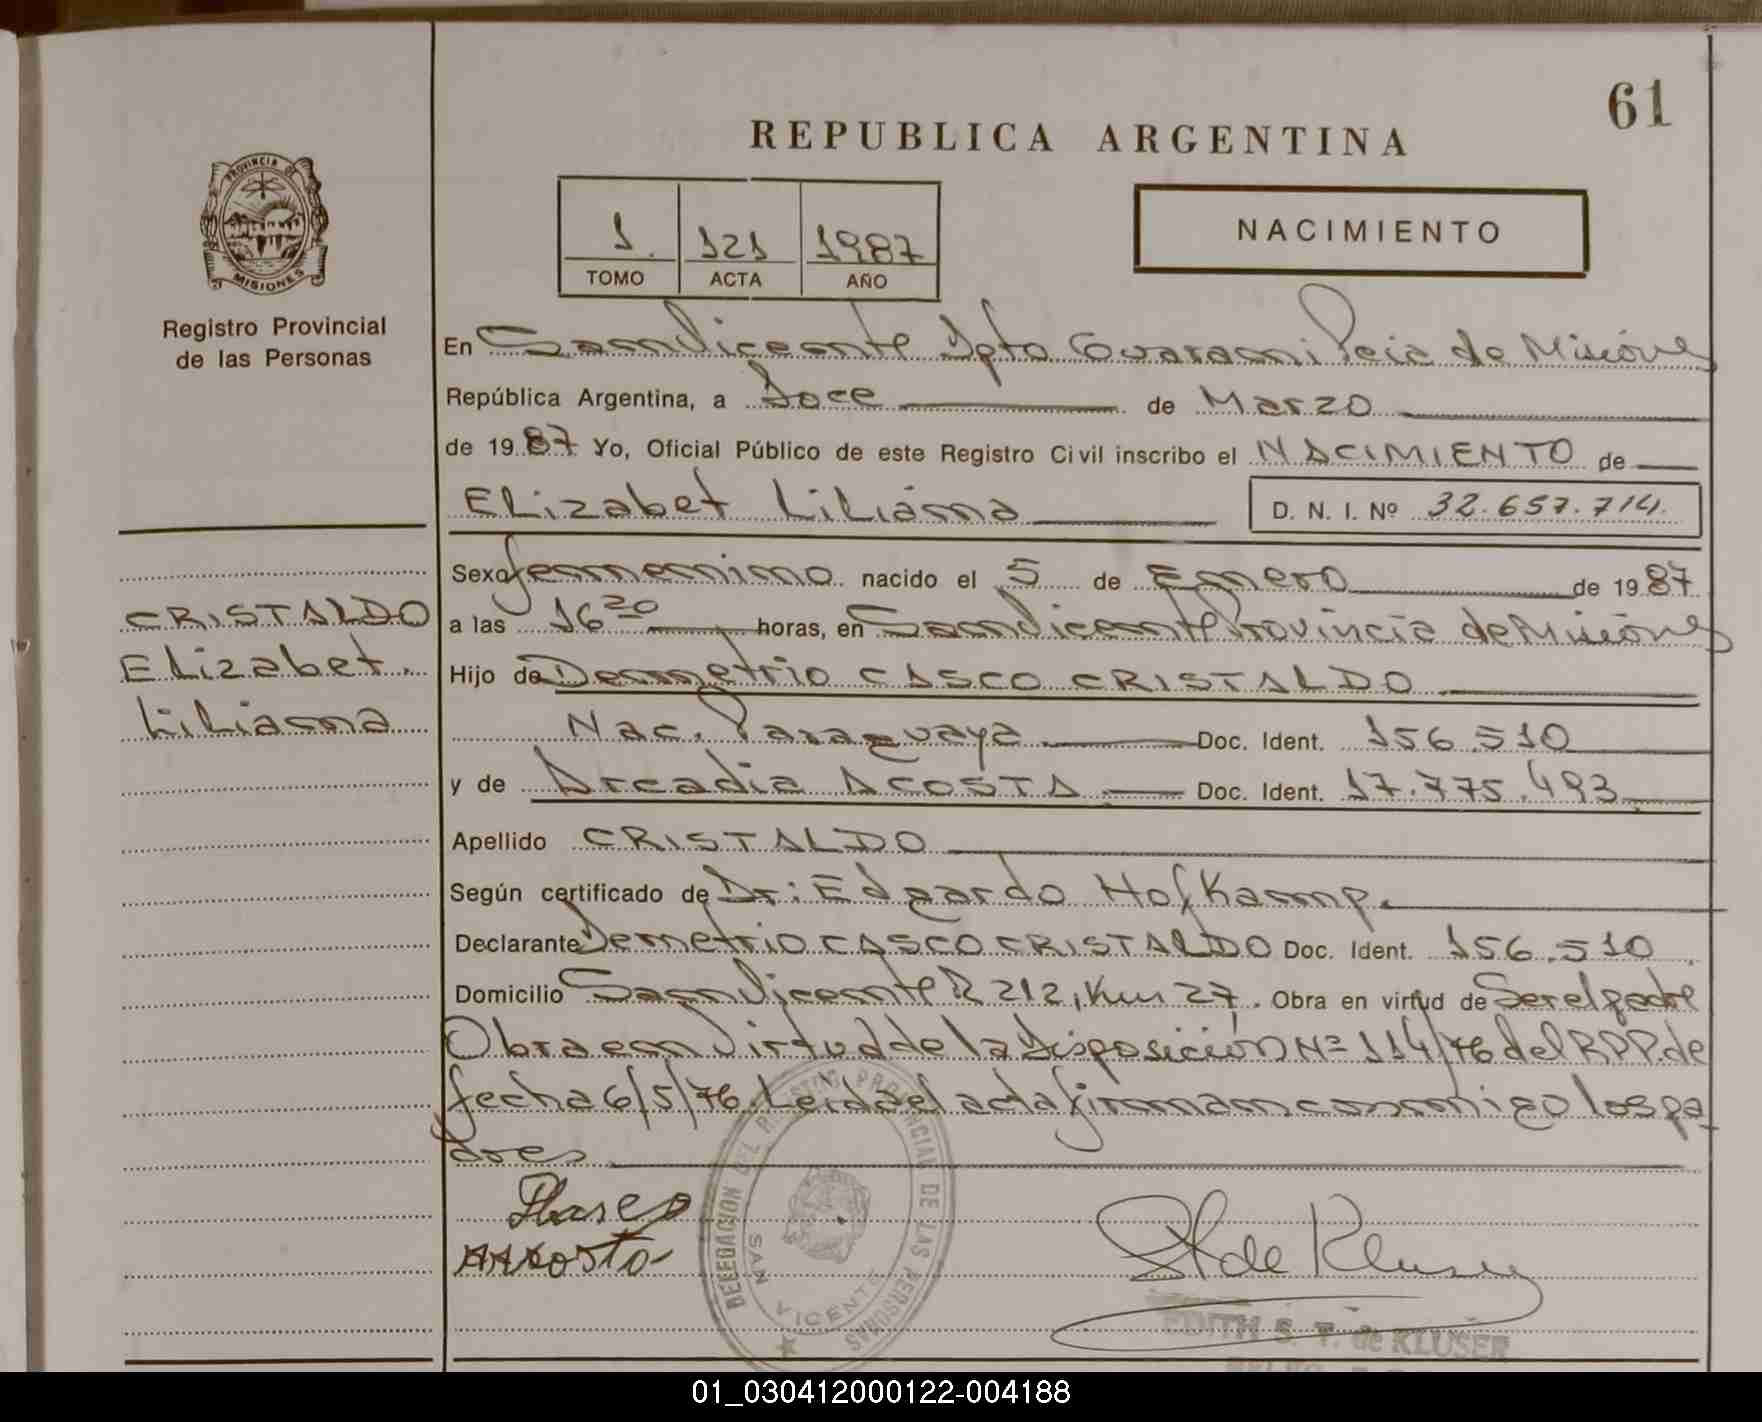 61
REPUBLICA ARGENTINA
PROVINCIA DE
MISIONES
Registro Provincial
de las Personas
1 121 1987
TOMO ACTA AÑO
NACIMIENTO
En San Vicente Dpto Guarani Pcia de Misiones
República Argentina, a Doce de Marzo
de 1987 Yo, Oficial Público de este Registro Civil inscribo el NACIMIENTO de
Elizabet Liliana D. N. I. Nº 32.657.714.
CRISTALDO
Elizabet
Liliana
Sexo femenino nacido el 5 de Enero de 1987
a las 16 20 horas, en San Vicente Provincia de Misiones
Hijo de Demetrio CASCO CRISTALDO
Nac. Paraguaya Doc. Ident. 156.510
y de Arcadia ACOSTA Doc. Ident. 17.775.493
Apellido CRISTALDO
Según certificado de Dr: Edgardo Hofkamp.
Declarante Demetrio CASCO CRISTALDO Doc. Ident. 156.510
Domicilio San Vicente R 212, Km 27. Obra en virtud de Ser el padre
Obra en Virtud de la Disposición Nº 114/76 del RPP. de
fecha 6/5/76. Leida el acta firman conmigo los pa-
dres
DELEGACION DEL REGISTRO PROVINCIAL DE LAS PERSONAS
SAN VICENTE
AAcosta
St de Kluser
EDITH S. T. de KLUSER
01_030412000122-004188